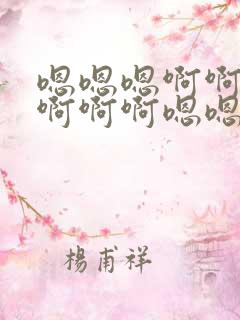 嗯嗯嗯啊啊
啊啊啊嗯嗯
楊甫祥